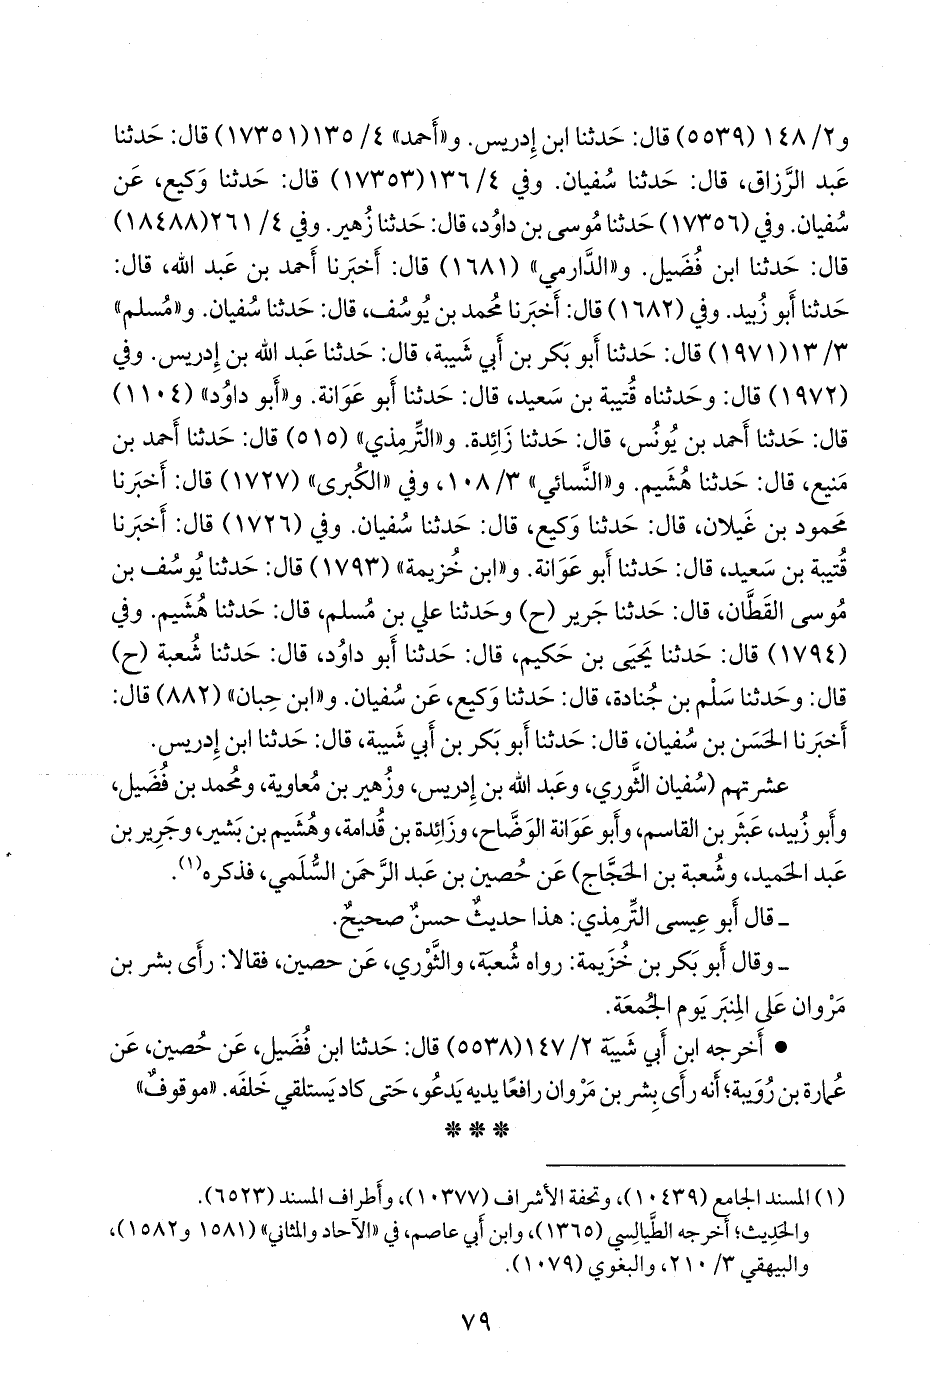 و٢/ ١٤٨ (٥٥٣٩) قال: حَدثنا ابن إِدريس. و«أَحمد» ٤/ ١٣٥(١٧٣٥١) قال: حَدثنا
عَبد الرَّزاق، قال: حَدثنا سُفيان. وفي ٤/ ١٣٦(١٧٣٥٣) قال: حَدثنا وَكيع، عَن
سُفيان. وفي (١٧٣٥٦) حَدثنا مُوسى بن داوُد، قال: حَدثنا زُهير. وفي ٤/ ٢٦١(١٨٤٨٨)
قال: حَدثنا ابن فُضَيل. و«الدَّارمي» (١٦٨١) قال: أَخبَرنا أَحمد بن عَبد الله، قال:
حَدثنا أَبو زُبيد. وفي (١٦٨٢) قال: أَخبَرنا مُحمد بن يُوسُف، قال: حَدثنا سُفيان. و«مُسلم»
٣/ ١٣(١٩٧١) قال: حَدثنا أَبو بَكر بن أَبي شَيبة، قال: حَدثنا عَبد الله بن إِدريس. وفي
(١٩٧٢) قال: وحَدثناه قُتيبة بن سَعيد، قال: حَدثنا أَبو عَوَانة. و«أَبو داوُد» (١١٠٤)
قال: حَدثنا أَحمد بن يُونُس، قال: حَدثنا زَائِدة. و«التِّرمِذي» (٥١٥) قال: حَدثنا أَحمد بن
مَنيع، قال: حَدثنا هُشَيم. و«النَّسائي» ٣/ ١٠٨، وفي «الكُبرى» (١٧٢٧) قال: أَخبَرنا
مَحمود بن غَيلان، قال: حَدثنا وَكيع، قال: حَدثنا سُفيان. وفي (١٧٢٦) قال: أَخبَرنا
قُتيبة بن سَعيد، قال: حَدثنا أَبو عَوَانة. و«ابن خُزيمة» (١٧٩٣) قال: حَدثنا يُوسُف بن
مُوسى القَطَّان، قال: حَدثنا جَرير (ح) وحَدثنا علي بن مُسلم، قال: حَدثنا هُشَيم. وفي
(١٧٩٤) قال: حَدثنا يَحيَى بن حَكيم، قال: حَدثنا أَبو داوُد، قال: حَدثنا شُعبة (ح)
قال: وحَدثنا سَلْم بن جُنادة، قال: حَدثنا وَكيع، عَن سُفيان. و«ابن حِبان» (٨٨٢) قال:
أَخبَرنا الحَسَن بن سُفيان، قال: حَدثنا أَبو بَكر بن أَبي شَيبة، قال: حَدثنا ابن إِدريس.
عشرتهم (سُفيان الثَّوري، وعَبد الله بن إِدريس، وزُهير بن مُعاوية، ومُحمد بن فُضَيل،
وأَبو زُبيد، عَبثَر بن القاسم، وأَبو عَوَانة الوَضَّاح، وزَائِدة بن قُدامة، وهُشَيم بن بَشير، وجَرير بن
عَبد الحَميد، وشُعبة بن الحَجَّاج) عَن حُصين بن عَبد الرَّحمَن السُّلَمي، فذكره(١).
ـ قال أَبو عِيسى التِّرمِذي: هذا حديثٌ حسنٌ صحيحٌ.
ـ وقال أَبو بَكر بن خُزَيمة: رواه شُعبَة، والثَّوْري، عَن حصين، فقالا: رأَى بشر بن
مَرْوان عَلى المِنبَر يَوم الجُمعَة.
• أَخرجه ابن أَبي شَيبَة ٢/ ١٤٧(٥٥٣٨) قال: حَدثنا ابن فُضَيل، عَن حُصين، عَن
عُمارة بن رُوَيبة؛ أَنه رأَى بِشر بن مَرْوان رافعًا يديه يَدعُو، حَتى كاد يَستلقي خَلفَه. «موقوفٌ»
* * *
(١) المسند الجامع (١٠٤٣٩)، وتحفة الأشراف (١٠٣٧٧)، وأطراف المسند (٦٥٢٣).
والحَدِيث؛ أخرجه الطَّيالِسي (١٣٦٥)، وابن أبي عاصم، في «الآحاد والمثاني» (١٥٨١ و١٥٨٢)،
والبيهقي ٣/ ٢١٠، والبغوي (١٠٧٩).
٧٩